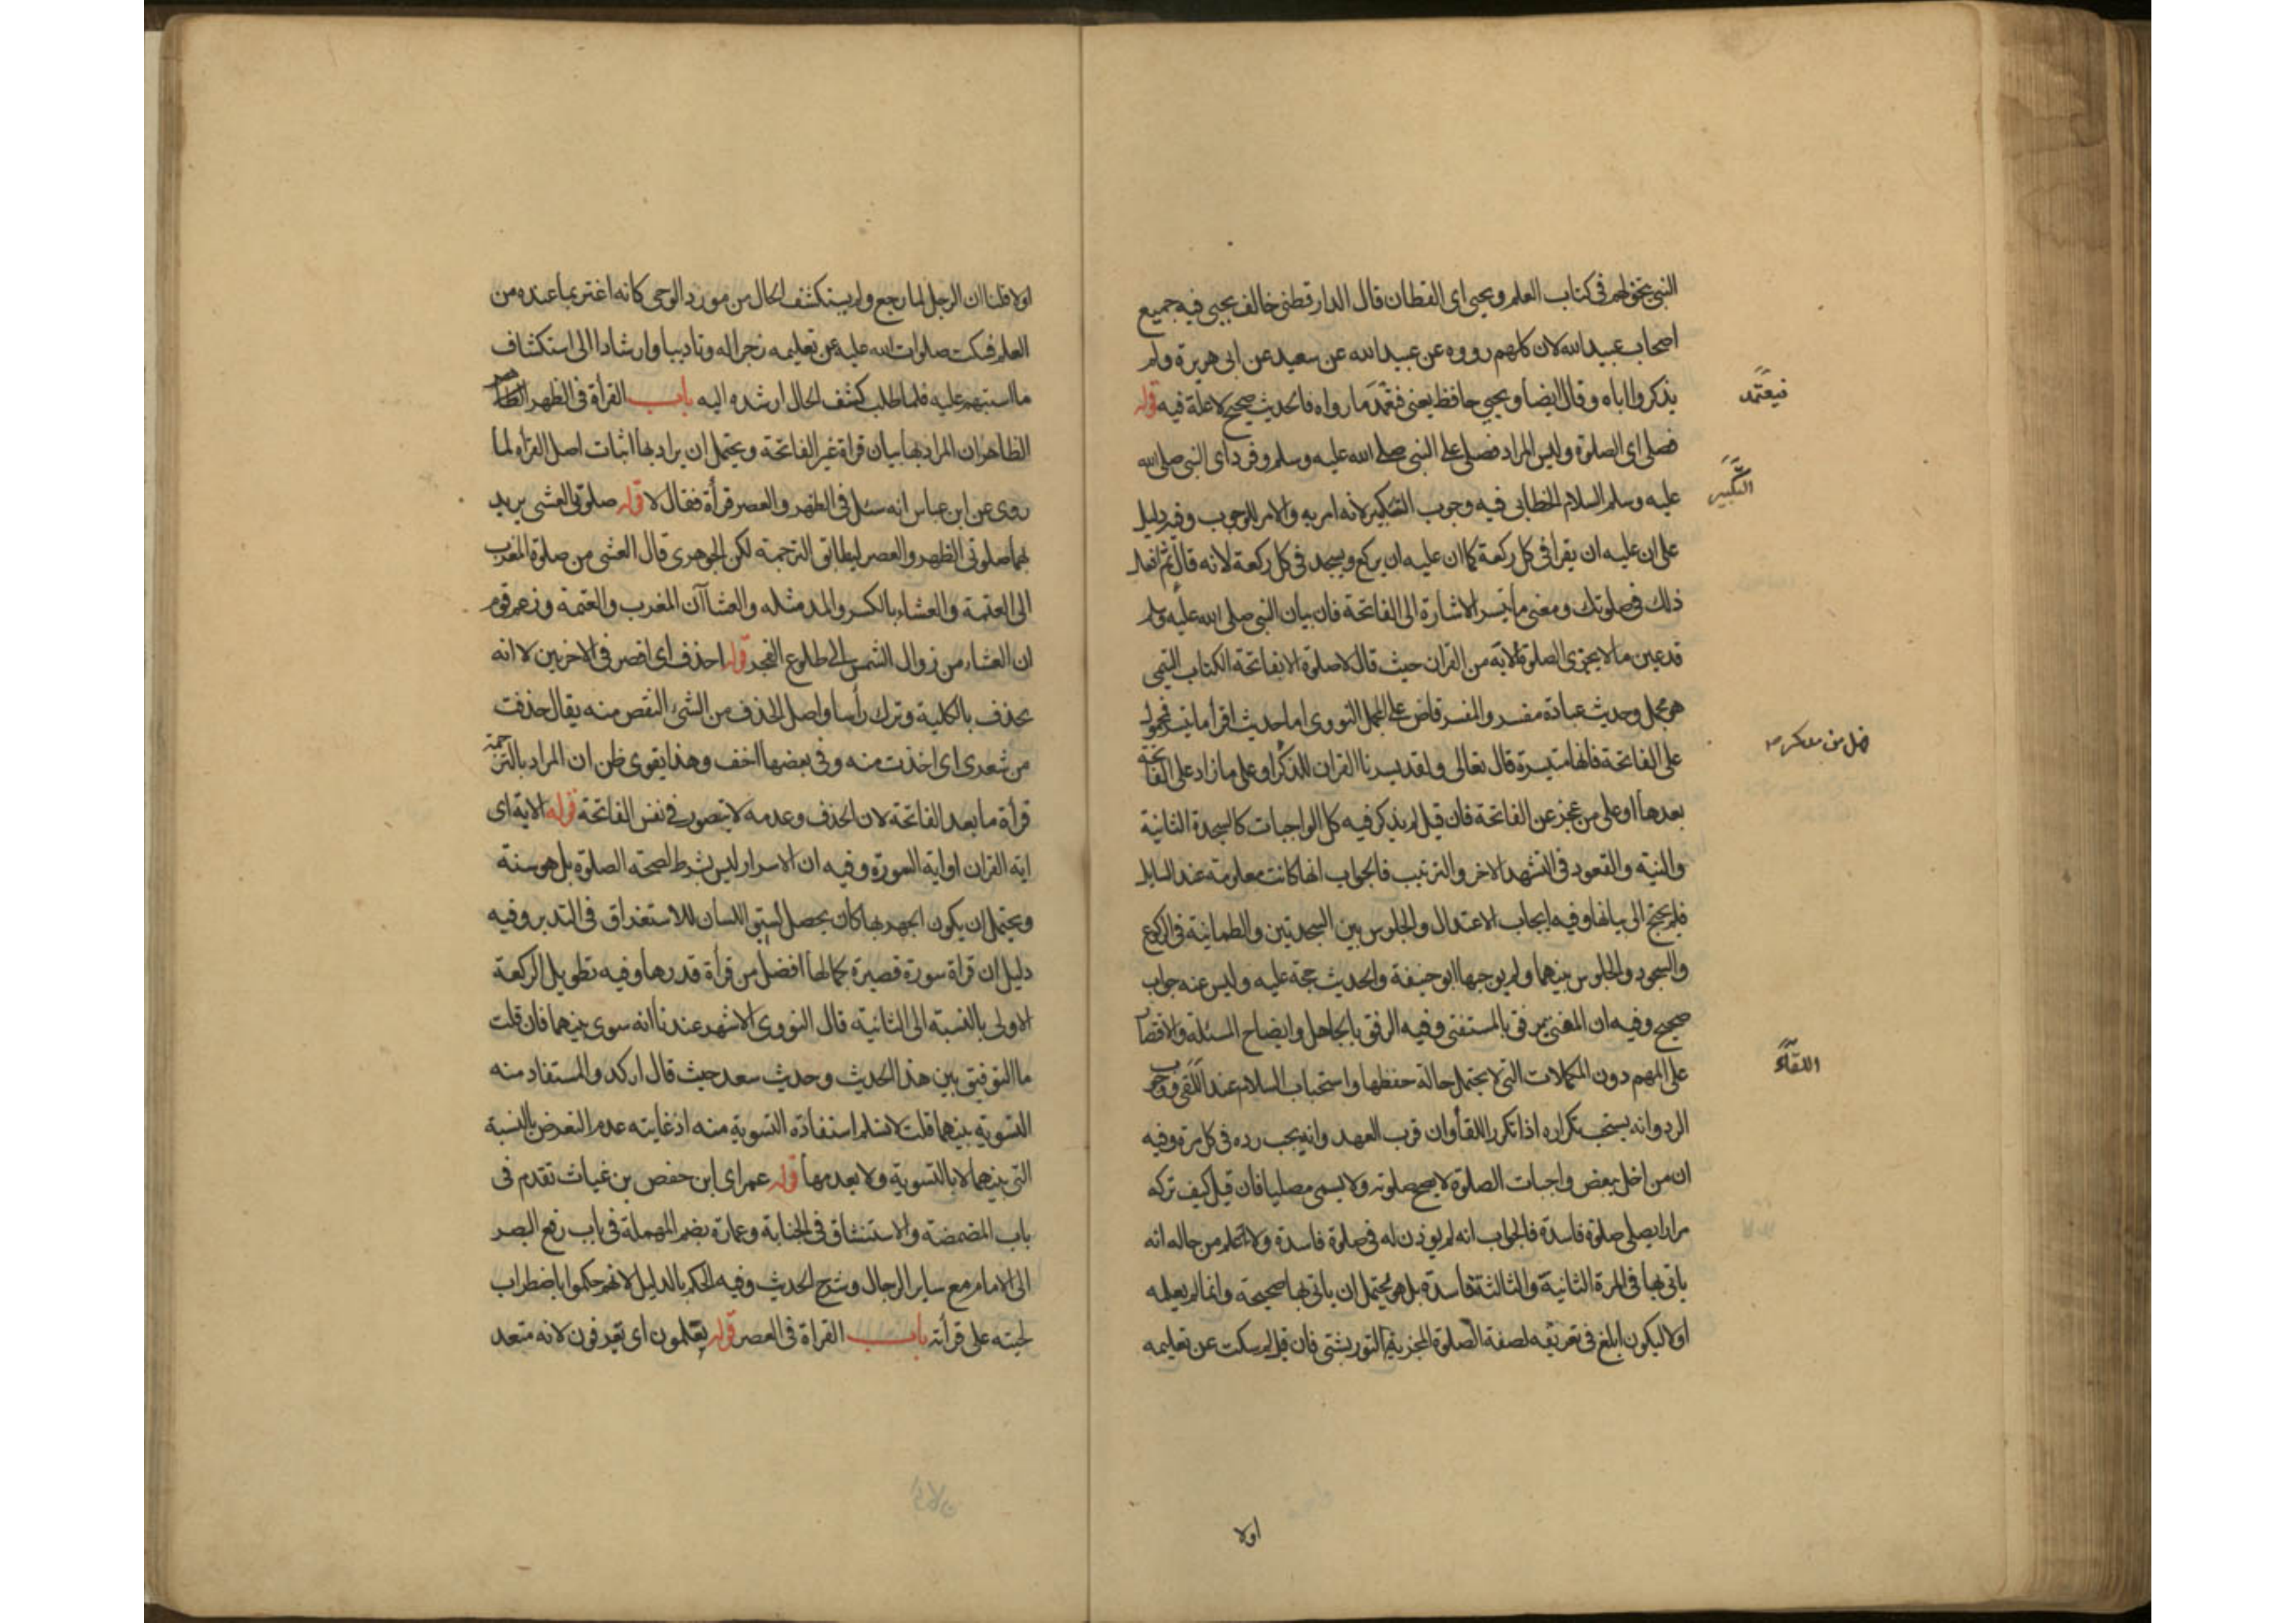 النبى يتخولهم فى كتاب العلم ويحيى اى القطان قال الدارقطنى خالف يحيى فيه جميع
اصحاب عبيد الله لان كلهم رووه عن عبيد الله عن سعيد عن ابى هريرة ولم
يذكروا اباه وقال ايضا ويحيى حافظ يعنى فيعتمد ما رواه فالحديث صحيح لا علة فيه قوله
فيعتمد
فصلى اى الصلوة وليس المراد فصلى على النبى صلى الله عليه وسلم وفرد اى النبى صلى الله
عليه وسلم السلام الخطابى فيه وجوب التكبير لانه امر به والامر للوجوب وفيه دليل
التكبير
على ان عليه ان يقرا فى كل ركعة كما ان عليه ان يركع ويسجد فى كل ركعة لانه قال ثم افعل
ذلك فى صلوتك ومعنى ما تيسر الاشارة الى الفاتحة فان بيان النبى صلى الله عليه وسلم
قد عين ما لا يجزى الصلوة الا به من القران حيث قال لا صلوة الا بفاتحة الكتاب التيمى
هو مجمل وحديث عبادة مفسر والمفسر قاض على المجمل النووى اما حديث اقرا ما تيسر فمحمول
على الفاتحة فانها متيسرة قال تعالى ولقد يسرنا القران للذكر او على ما زاد على الفاتحة
فهل من مدكر صح
بعدها او على من عجز عن الفاتحة فان قيل لم يذكر فيه كل الواجبات كالسجدة الثانية
والنية والقعود فى التشهد الاخر والترتيب فالجواب انها كانت معلومة عند السايل
فلم يحتج الى بيانها وفيه ايجاب الاعتدال والجلوس بين السجدتين والطمانينة فى الركوع
والسجود والجلوس بينهما ولم يوجبها ابو حنيفة والحديث حجة عليه وليس عنه جواب
صحيح وفيه ان المفتى يرفق بالمستفتى وفيه الرفق بالجاهل وايضاح المسئلة والاقتصار
على المهم دون المكملات التى لا يحتمل حاله حفظها واستحباب السلام عند اللقى ووجوب
اللقاء
الرد وانه يستحب تكراره اذا تكرر اللقاء وان قرب العهد وانه يجب رده فى كل مرة وفيه
ان من اخل ببعض واجبات الصلوة لا يصح صلوته ولا يسمى مصليا فان قيل كيف تركه
مرارا يصلى صلوة فاسدة فالجواب انه لم يؤذن له فى صلوة فاسدة ولا علم من حاله انه
ياتى بها فى المرة الثانية والثالثة فاسدة بل هو يحتمل ان ياتى بها صحيحة وانما لم يعلمه
اولا ليكون ابلغ فى تعريفه لصفة الصلوة المجزية التوربشتى فان قيل لم سكت عن تعليمه
اولا
اولا قلنا ان الرجل لما رجع ولم يستكشف الحال من مورد الوحى كانه اغتر بما عنده من
العلم فسكت صلوات الله عليه عن تعليمه زجرا له وتاديبا وارشادا الى استكشاف
ما استبهم عليه فلما طلب كشف الحال ارشده اليه باب القرأة فى الظهر
الظاهر ان المراد بها بيان قراة غير الفاتحة ويحتمل ان يراد بها اثبات اصل القرأة لما
روى عن ابن عباس انه سئل فى الظهر والعصر قرأة فقال لا قوله صلوتى العشى يريد
بهما صلوتى الظهر والعصر ليطابق الترجمة لكن الجوهرى قال العشى من صلوة المغرب
الى العتمة والعشاء بالكسر والمد مثله والعشاآن المغرب والعتمة وزعم قوم
ان العشاء من زوال الشمس الى طلوع الفجر قوله احذف اى اقصر فى الاخريين لا انه
يحذف بالكلية وترك رأسا واصل الحذف من الشىء النقص منه يقال حذفت
من شعرى اى اخذت منه وفى بعضها اخف وهذا يقوى ظن ان المراد بالترجمة
قرأة ما بعد الفاتحة لان الحذف وعدمه لا يتصور فى نفس الفاتحة قوله الاية اى
اية القران او اية السورة وفيه ان الاسرار ليس بشرط لصحة الصلوة بل هو سنة
ويحتمل ان يكون الجهر بها كان يحصل لسبق اللسان للاستغراق فى التدبر وفيه
دليل ان قراة سورة قصيرة بكمالها افضل من قرأة قدرها وفيه تطويل الركعة
الاولى بالنسبة الى الثانية قال النووى الاشهر عندنا انه سوى بينهما فان قلت
ما التوفيق بين هذا الحديث وحديث سعد حيث قال اركد والمستفاد منه
التسوية بينهما قلت لا نسلم استفادة التسوية منه اذ غايته عدم التعرض بالنسبة
التى بينهما لا بالتسوية ولا بعدمها قوله عمر اى ابن حفص بن غياث تقدم فى
باب المضمضة والاستنشاق فى الجنابة وعمارة بضم المهملة فى باب رفع البصر
الى الامام مع ساير الرجال وشرح الحديث وفيه الحكم بالدليل لانهم حكموا باضطراب
لحيته على قرأته باب القراة فى العصر قوله يعلمون اى يعرفون لانه متعد